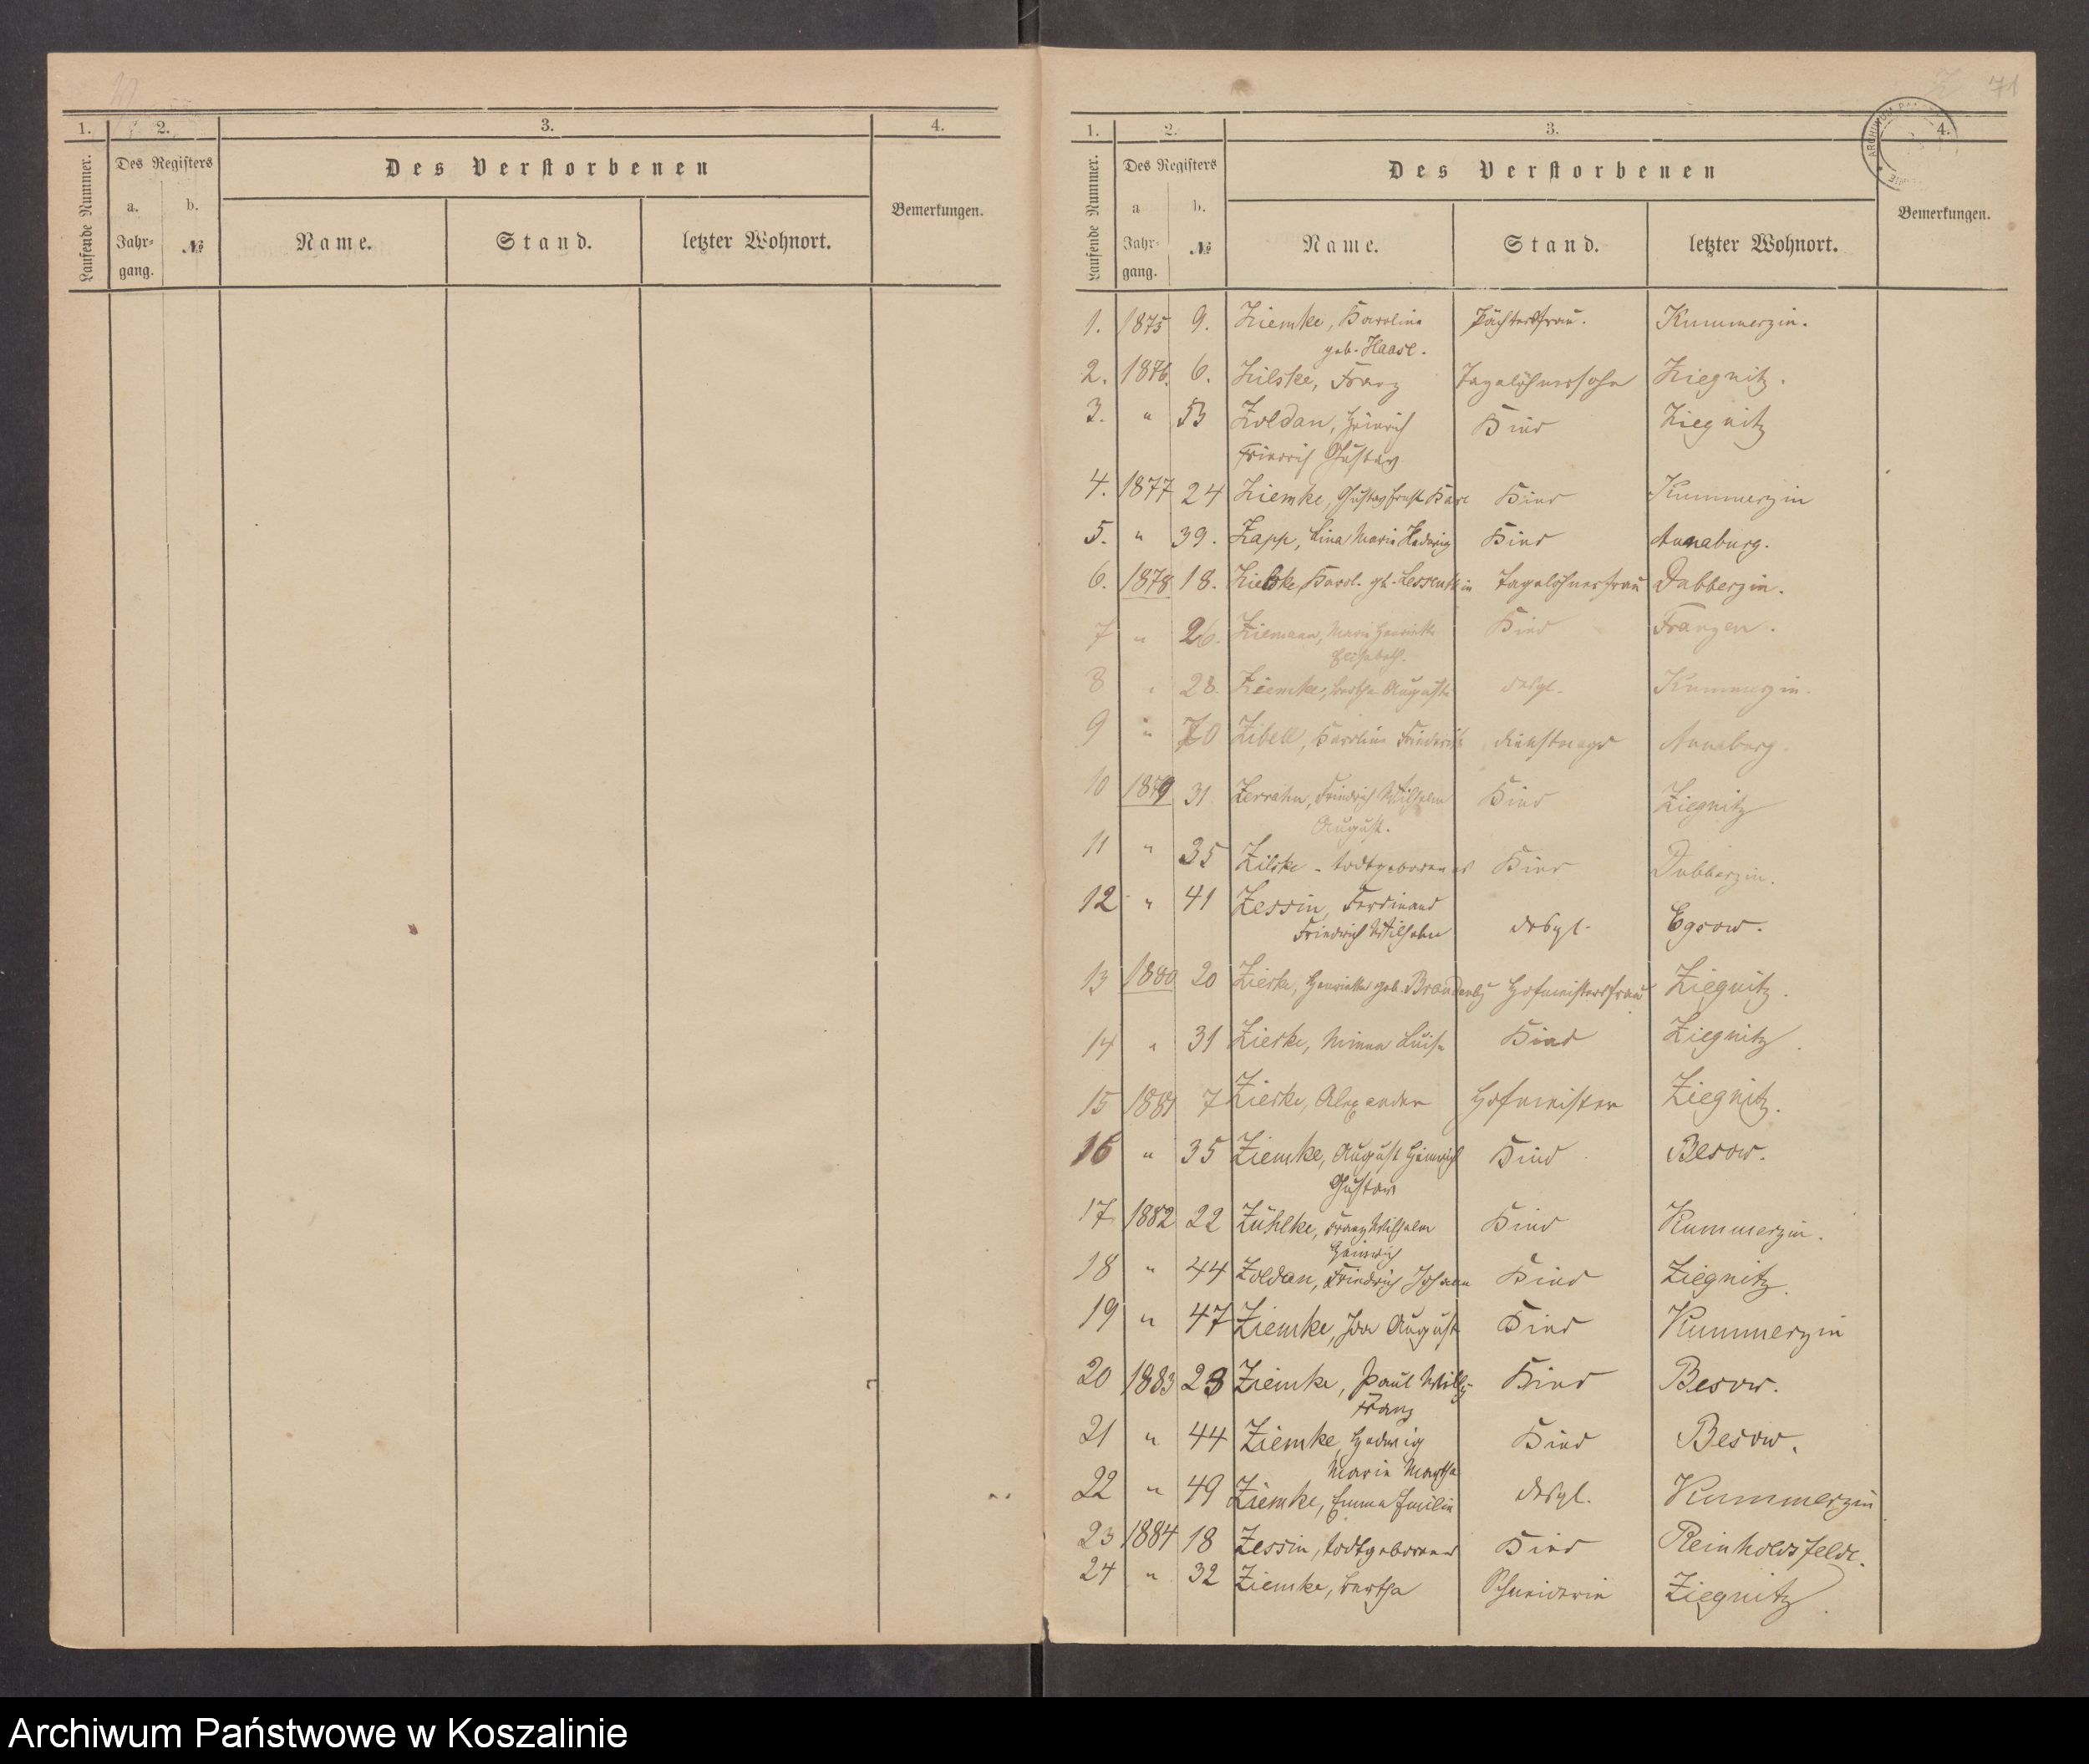 1. 2. 3. 4.
Laufende Nummer. Des Registers Des Verstorbenen Bemerkungen.
a. b.
Jahrgang. № Name. Stand. letzter Wohnort.
71
1. 2. 3. 4.
Laufende Nummer. Des Registers Des Verstorbenen Bemerkungen.
a b.
Jahrgang. № Name. Stand. letzter Wohnort.
1. 1875 9. Ziemke, Karoline Pächtersfrau. Kummerzin.
geb. Haase.
2. 1876. 6. Zilske, Franz Tagelöhnersohn Ziegnitz.
3. " 53 Zoldan, Heinrich Kind Ziegnitz
Friedrich Gustav
4. 1877 24 Ziemke, Gustav Ernst Karl Kind Kummerzin
5. " 39. Zapp, Lina Marie Hedwig Kind Annaburg.
6. 1878 18. Karol. gb. Lessenthin Tagelöhnerfrau Dubberzin.
7 " 26. Ziemann, Marie Henriette Kind Franzen.
Elisabeth.
8 " 28. Ziemke, Bertha Auguste desgl. Kummerzin.
9 " 70 Zibell, Karoline Friederike Dienstmagd Annaburg.
10 1879 31 Zerrahn, Friedrich Wilhelm Kind Ziegnitz
August.
11 " 35 Zilske - todtgeborenes Kind Dubberzin.
12 " 41 Zessin, Ferdinand
Friedrich Wilhelm desgl. Egsow.
13 1880 20 Zieske, Henriette geb. Brandenbg Hofmeistersfrau Ziegnitz.
14 " 31 Zieske, Minna Luise Kind Ziegnitz.
15 1881 7 Zieske, Alexander Hofmeister Ziegnitz.
16 " 35 Ziemke, August Heinrich Kind Besow.
Gustav
17 1882 22 Zühlke, Franz Wilhelm Kind Kummerzin.
Heinrich
18 " 44 Zoldan, Friedrich Johann Kind Ziegnitz.
19 " 47 Ziemke, Ida August Kind Kummerzin
20 1883 23 Ziemke, Paul Willy Kind Besow.
Franz
21 " 44 Ziemke, Hedwig Kind Besow.
Marie Martha
22 " 49 Ziemke, Emma Emilie desgl. Kummerzin
23 1884 18 Zessin, todtgeborenes Kind Reinholdsfelde.
24 " 32 Ziemke, Bertha Schneiderin Ziegnitz.
Archiwum Państwowe w Koszalinie